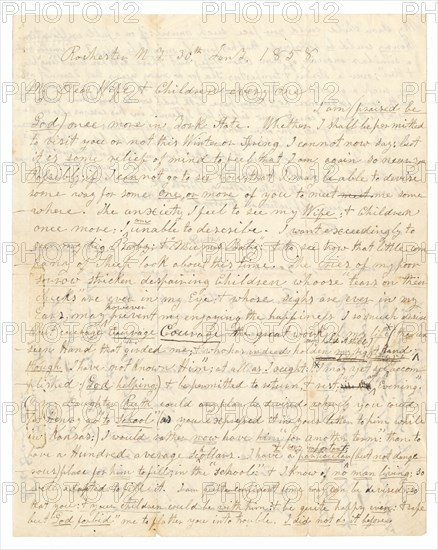 Rochester N.Y. 30th Jan'y, 1858.
My Dear Wife & Children every one
I am (praised be
God) once more in York State. Whether I shall be permitted
to visit you or not this Winter or Spring I cannot now say; but
it is some relief of mind to feel that I am again so near you.
Possibly; if I cannot go to see you; that I may be able to devise
some way for some one or more of you to meet me some
where. The anxiety I feel to see my Wife; & Children
once more; I am unable to describe. I want exceedingly to
see my big Baby; & Ruth's Baby; & to see how that little
company of sheep look about this time. The cries of my poor
sorrow stricken despairing Children whoose tears on their
cheeks are ever in my Eye; & whose sighs are ever in my
Ears; may however prevent my enjoying the happiness I so much desire.
But courage Courage Courage the great work of my life (the un-
seen Hand that "girded me; & who has indeed holden my right hand
though I have not known Him;" at all as I ought:) I may yet see accom-
plished; (God helping;) & be permitted to return, & rest at Evening.
O my Daughter Ruth could any plan be devised whereby you could
let Henry go "to School" as you expressed it in your letter to him while
in Kansas; I would rather now have him for another term; than to
have a Hundred average scholars. I have a particular & very important; but not dange-
rous place for him to fill; in the "school;" & I know of no man living; so
well adapted to fill it. I am quite confident some way can be devised; so
that you; & your children could be with him; & be quite happy even: & safe
but "God forbid" me to flatter you into trouble. I did not do it before.